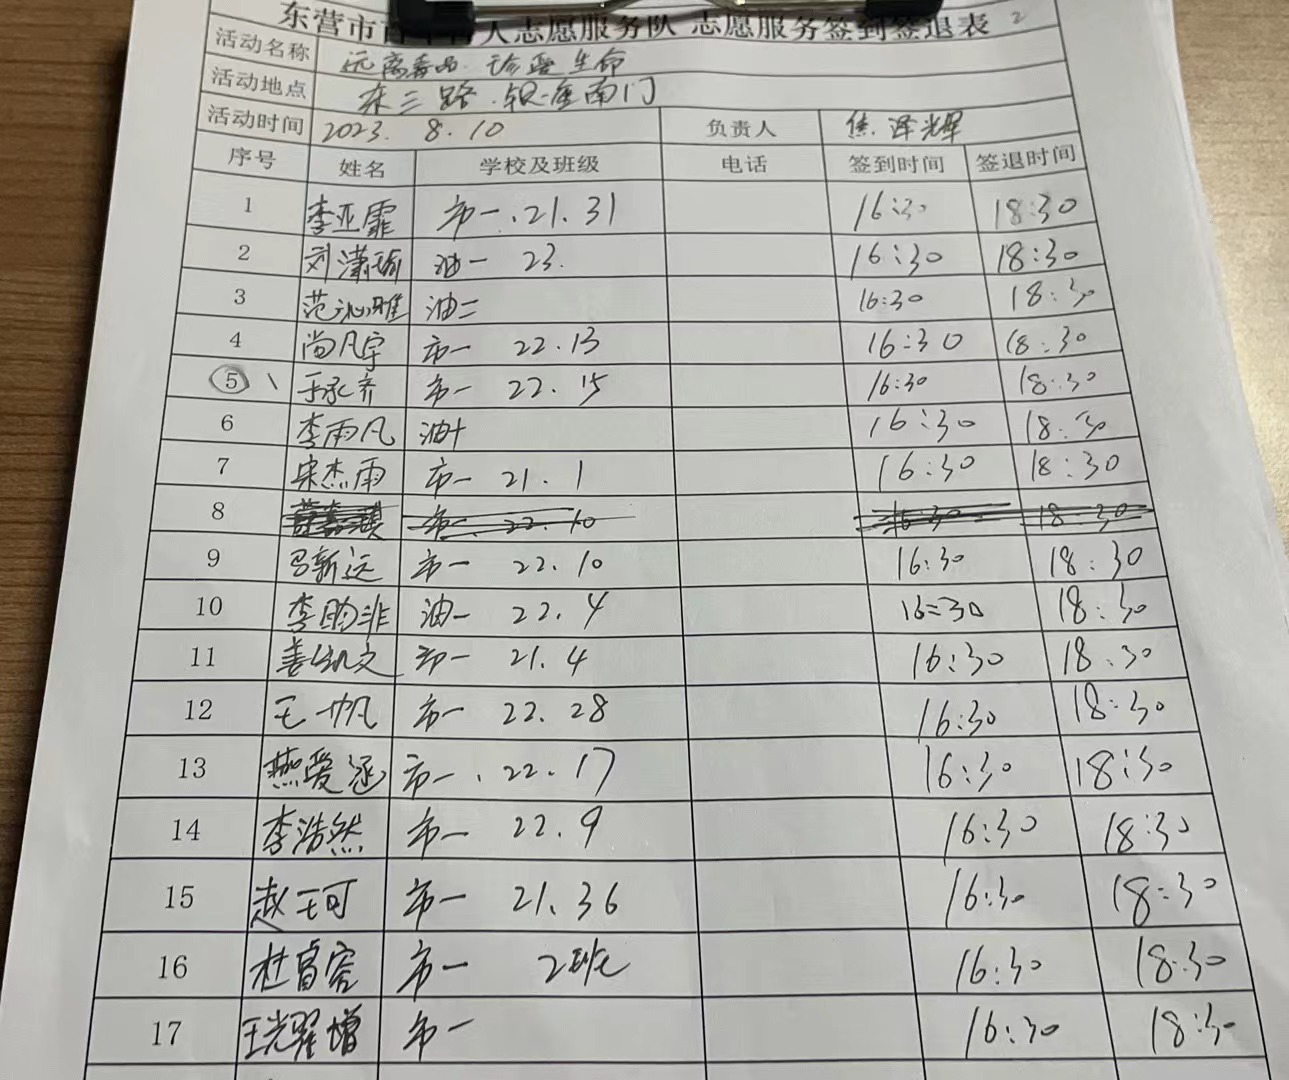 东营市 人志愿服务队 志愿服务签到签退表 2
活动名称 远离毒品 珍爱生命
活动地点 东三路.银座南门
活动时间 2023. 8. 10 负责人 焦泽辉
序号 姓名 学校及班级 电话 签到时间 签退时间
1 李亚霏 市一.21.31 16:30 18:30
2 刘潇瑜 油一 23. 16:30 18:30
3 范沁雅 油二 16:30 18:30
4 尚凡宇 市一 22.13 16:30 18:30
5 于承齐 市一 22.15 16:30 18:30
6 李雨凡 油十 16:30 18:30
7 宋杰雨 市一 21.1 16:30 18:30
8 市一 22.10 16:30 18:30
9 吕新远 市一 22.10 16:30 18:30
10 李昀非 油一 22.4 16:30 18:30
11 姜凯文 市一 21.4 16:30 18:30
12 王一帆 市一 22.28 16:30 18:30
13 燕爱涵 市一.22.17 16:30 18:30
14 李浩然 市一 22.9 16:30 18:30
15 赵王可 市一 21.36 16:30 18:30
16 杜睿容 市一 2班 16:30 18:30
17 王光耀增 市一 16:30 18:30